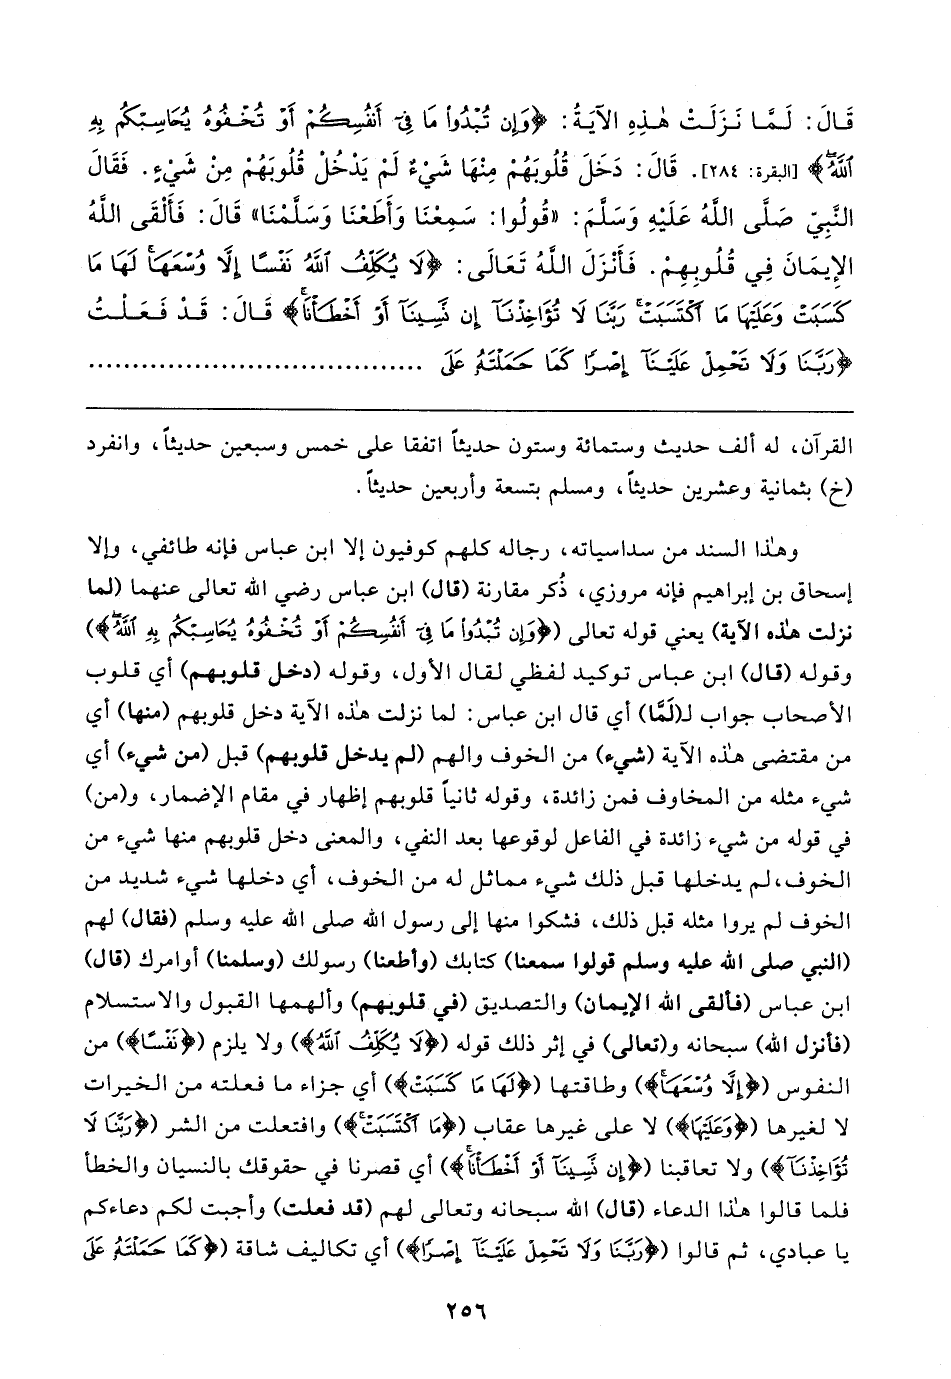 قَالَ: لَمَّا نَزَلَتْ هٰذِهِ الآيَةُ: ﴿وَإِن تُبْدُواْ مَا فِىٓ أَنفُسِكُمْ أَوْ تُخْفُوهُ يُحَاسِبْكُم بِهِ
ٱللَّهُۖ﴾ [البقرة: ٢٨٤]. قَالَ: دَخَلَ قُلُوبَهُمْ مِنْهَا شَيْءٌ لَمْ يَدْخُلْ قُلُوبَهُمْ مِنْ شَيْءٍ. فَقَالَ
النَّبِيّ صَلَّى اللَّهُ عَلَيْهِ وَسَلَّمَ: «قُولُوا: سَمِعْنَا وَأَطَعْنَا وَسَلَّمْنَا» قَالَ: فَأَلْقَى اللَّهُ
الإِيمَانَ فِي قُلُوبِهِمْ. فَأَنْزَلَ اللَّهُ تَعَالَى: ﴿لَا يُكَلِّفُ ٱللَّهُ نَفْسًا إِلَّا وُسْعَهَاۚ لَهَا مَا
كَسَبَتْ وَعَلَيْهَا مَا ٱكْتَسَبَتْۗ رَبَّنَا لَا تُؤَاخِذْنَآ إِن نَّسِينَآ أَوْ أَخْطَأْنَاۚ﴾ قَالَ: قَدْ فَعَلْتُ
﴿رَبَّنَا وَلَا تَحْمِلْ عَلَيْنَآ إِصْرًا كَمَا حَمَلْتَهُۥ عَلَى ......................................
القرآن، له ألف حديث وستمائة وستون حديثاً اتفقا على خمس وسبعين حديثاً، وانفرد
(خ) بثمانية وعشرين حديثاً، ومسلم بتسعة وأربعين حديثاً.
وهٰذا السند من سداسياته، رجاله كلهم كوفيون إلا ابن عباس فإنه طائفي، وإلا
إسحاق بن إبراهيم فإنه مروزي، ذُكر مقارنة (قال) ابن عباس رضي الله تعالى عنهما (لما
نزلت هٰذه الآية) يعني قوله تعالى (﴿وَإِن تُبْدُواْ مَا فِىٓ أَنفُسِكُمْ أَوْ تُخْفُوهُ يُحَاسِبْكُم بِهِ ٱللَّهُۖ﴾)
وقوله (قال) ابن عباس توكيد لفظي لقال الأول، وقوله (دخل قلوبهم) أي قلوب
الأصحاب جواب لـ(لَمَّا) أي قال ابن عباس: لما نزلت هٰذه الآية دخل قلوبهم (منها) أي
من مقتضى هٰذه الآية (شيء) من الخوف والهم (لم يدخل قلوبهم) قبل (من شيء) أي
شيء مثله من المخاوف فمن زائدة، وقوله ثانياً قلوبهم إظهار في مقام الإضمار، و(من)
في قوله من شيء زائدة في الفاعل لوقوعها بعد النفي، والمعنى دخل قلوبهم منها شيء من
الخوف، لم يدخلها قبل ذلك شيء مماثل له من الخوف، أي دخلها شيء شديد من
الخوف لم يروا مثله قبل ذلك، فشكوا منها إلى رسول الله صلى الله عليه وسلم (فقال) لهم
(النبي صلى الله عليه وسلم قولوا سمعنا) كتابك (وأطعنا) رسولك (وسلمنا) أوامرك (قال)
ابن عباس (فألقى الله الإيمان) والتصديق (في قلوبهم) وألهمها القبول والاستسلام
(فأنزل الله) سبحانه و(تعالى) في إثر ذلك قوله (﴿لَا يُكَلِّفُ ٱللَّهُ﴾) ولا يلزم (﴿نَفْسًا﴾) من
النفوس (﴿إِلَّا وُسْعَهَاۚ﴾) وطاقتها (﴿لَهَا مَا كَسَبَتْ﴾) أي جزاء ما فعلته من الخيرات
لا لغيرها (﴿وَعَلَيْهَا﴾) لا على غيرها عقاب (﴿مَا ٱكْتَسَبَتْۗ﴾) وافتعلت من الشر (﴿رَبَّنَا لَا
تُؤَاخِذْنَآ﴾) ولا تعاقبنا (﴿إِن نَّسِينَآ أَوْ أَخْطَأْنَاۚ﴾) أي قصرنا في حقوقك بالنسيان والخطأ
فلما قالوا هٰذا الدعاء (قال) الله سبحانه وتعالى لهم (قد فعلت) وأجبت لكم دعاءكم
يا عبادي، ثم قالوا (﴿رَبَّنَا وَلَا تَحْمِلْ عَلَيْنَآ إِصْرًا﴾) أي تكاليف شاقة (﴿كَمَا حَمَلْتَهُۥ عَلَى
٢٥٦